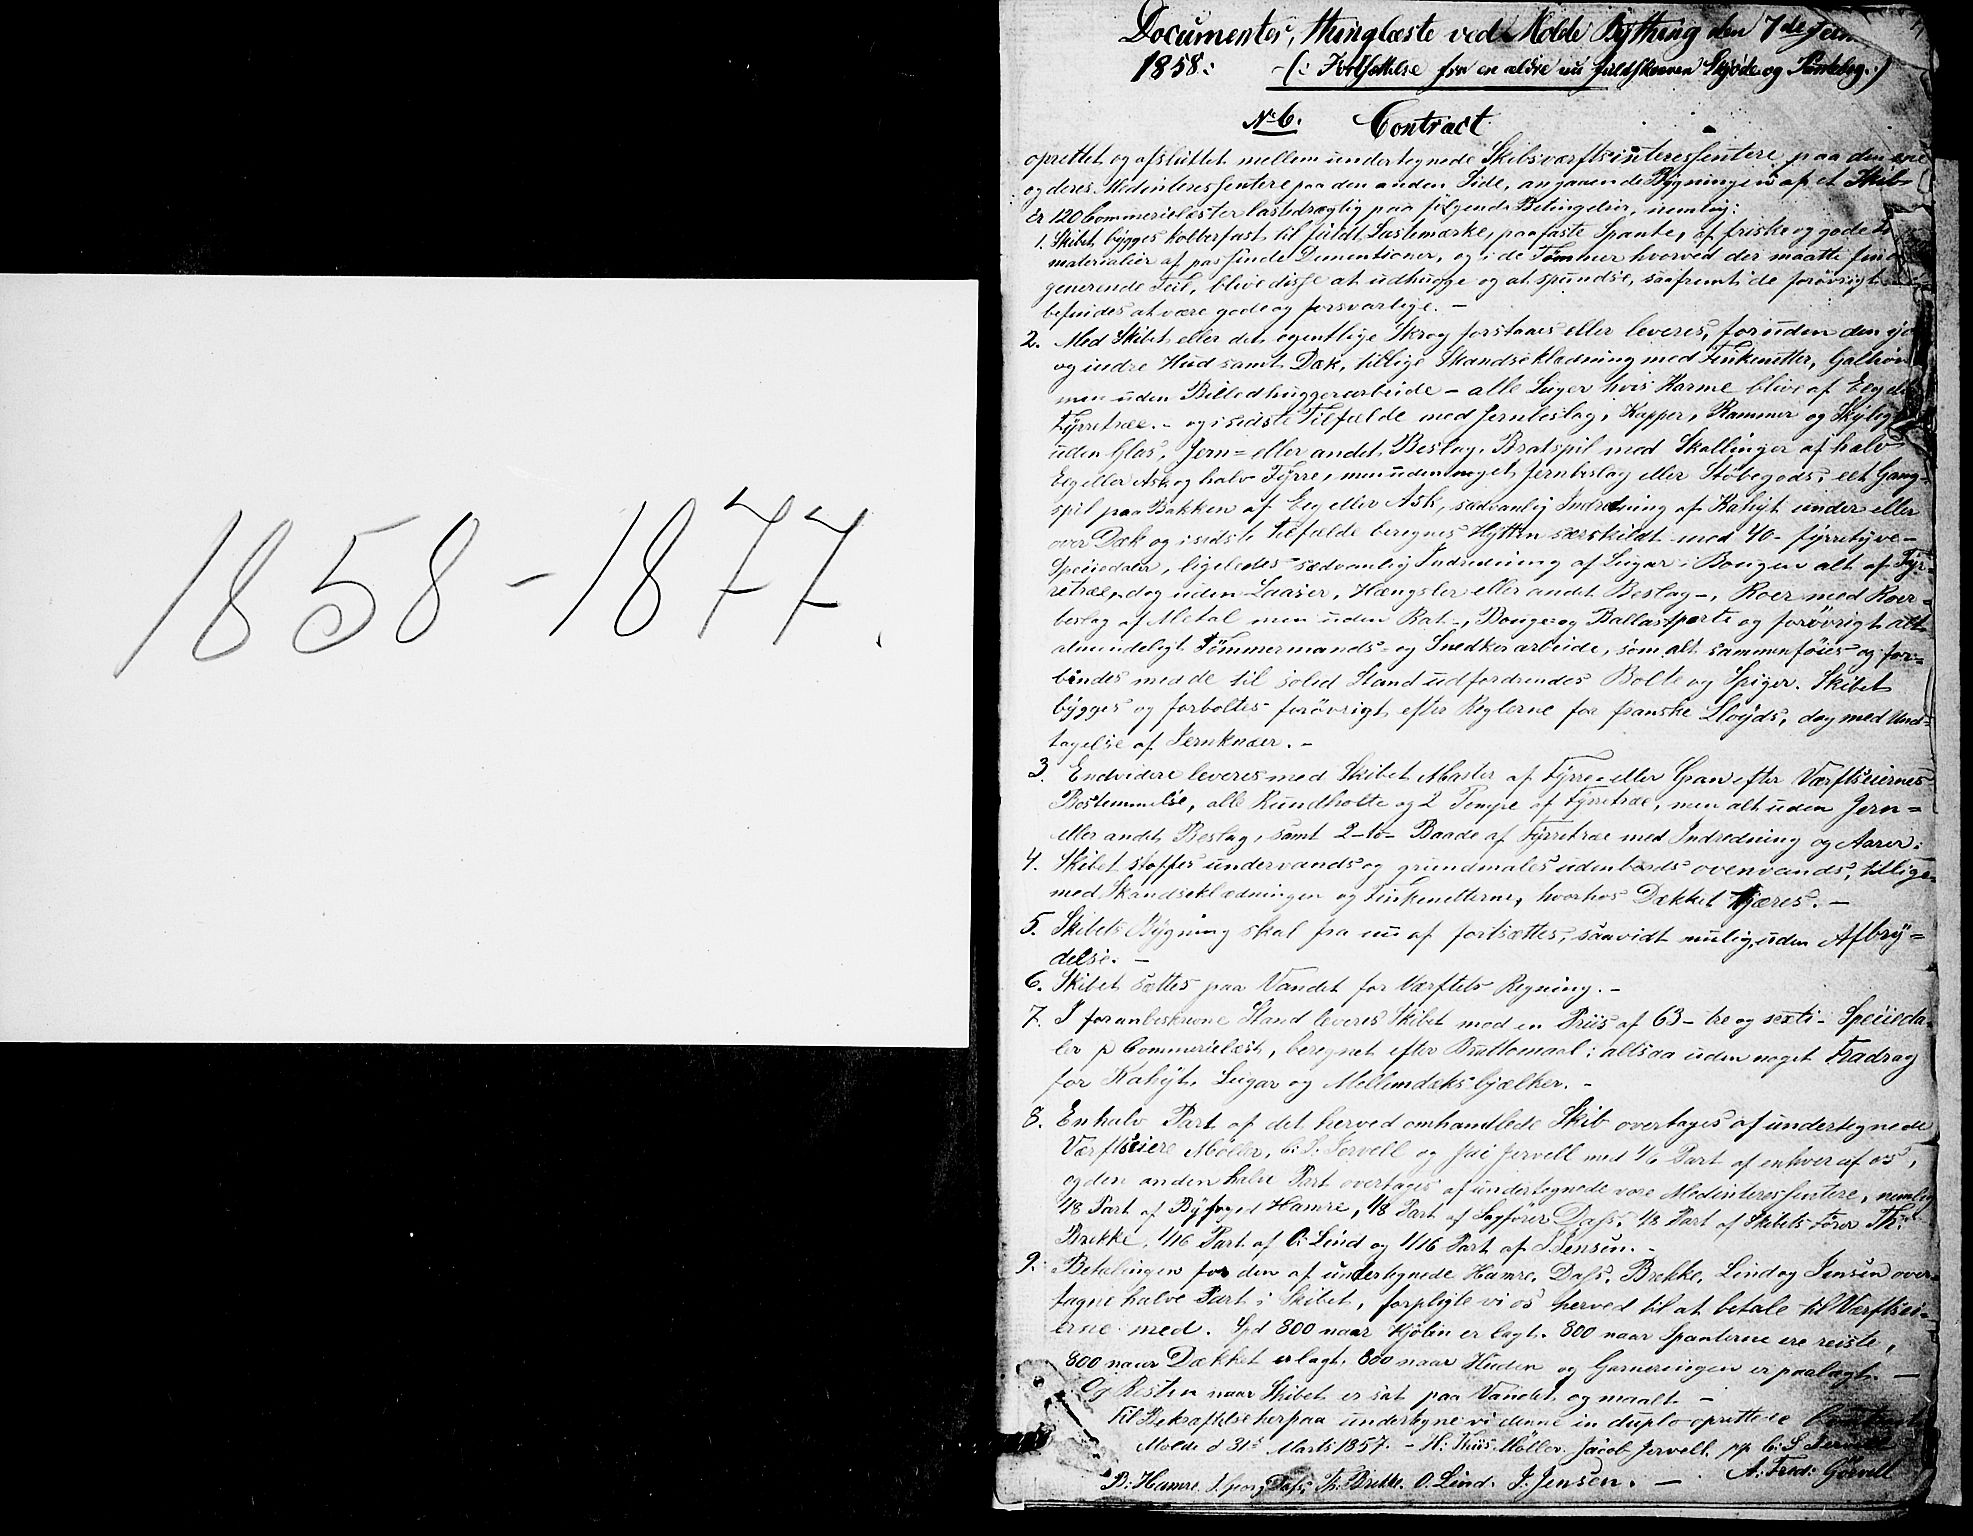 1858-1877.
Documenter, thinglæste ved Molde Bything den 7de
1858: (: Fortsættelse fra en ældre nu fuldskreven Skjøde og Pantebog.)
No 6. Contract
oprettet og afsluttet mellem undertegnede Skibsværftsinteressentere paa den ene
og deres Medinteressentere paa den anden Side, angaaende Bygningen af et Skib
Commercelæster lastedrægtig paa følgende Betingelser, nemlig:
1. Skibet bygges kolberfast til fuldt Lastemærke, paa faste Spante, af friske og gode
materialier af passende Dimentioner, og i de Tømmer hvorved der maatte
generende Feil, blive disse at udhugge og at spundse, saafremt de forøvrigt
befindes at være gode og forsvarlige. -
2. Med Skibet eller det egentlige Skrog forstaaes eller leveres, foruden den
og indre Hud samt Dæk, tillige Skandseklædning med Finkenetter, Galion
men uden Billedhuggerarbeide - alle Luger hvis Karme blive af Eeg eller
Fyrretræe. - og i sidste Tilfælde med Jernbeslag, Kapper, Rammer og
uden Glas, Jern= eller andet Beslag. Bratspil med Skallinger af halv
Eeg eller Ask og halv Fyrre, men uden noget Jernbeslag eller Støbegods, eet Gang-
spil paa Bakken af Eeg eller Ask, sædvanlig Indredning af Kahyt under eller
over Dæk og i sidste tilfælde beregnes Hytten særskildt med 40- fyrretyve-
Speciedaler, ligeledes sædvanlig Indredning af Lugar i Bougen alt af Fyr-
retræe, dog uden Laaser, Hængsler eller andet Beslag -, Roer med Roer-
beslag af Metal men uden Rat -, Bouge- og Ballastporte og forøvrigt alt
almindeligt Tømmermands- og Snedkerarbeide, som alt sammenføies og for=
bindes med de til solid Stand udfordrendes Bolte og Spiger. Skibet
bygges og forboltes forøvrigt efter Reglerne for franske Lloyds, dog med Und=
tagelse af Jernknæer. -
3. Endvidere leveres med Skibet Master af Fyrre- eller Gran efter Værftseiernes
Bestemmelse, alle Rundholte og 2 Pompe af Fyrretræe, men alt uden Jern=
eller andet Beslag, samt 2-to- Baade af Fyrretræe med Indredning og Aarer.
4. Skibet stoffes undervands og grundmales udenbords ovenvands, tillige-
med Skandseklædningen og Finkenetterne, hvorhos Dækket tjæres. -
5. Skibets Bygning skal fra nu af fortsættes, saavidt mulig, uden Afbry=
delse. -
6. Skibet sættes paa Vandet for Værftets Regning. -
7. I foranbeskrevne Stand leveres Skibet med en Priis af 63- tre og sexti- Specieda-
ler p Commercelæst, beregnet efter Bruttomaal; altsaa uden noget Fradrag
for Kahyt, Lugar og Mellemdæksbjælker. -
8. En halv Part af det herved omhandlede Skib overtages af undertegnede
Værftseiere Møller, C. S. Jervell og Jac Jervell med 1/6 Part af enhver af os,
og den anden halve Part overtages af undertegnede vore Medinteressentere, nemlig
1/8 Part af Byfoged Hamre, 1/8 Part af Sagfører Dass, 1/8 Part af Skibets Fører Th:
Brekke, 1/16 Part af O. Lind og 1/16 Part af J Jensen. -
9. Betalingen for den af undertegnede Hamre, Dass, Brekke, Lind og Jensen over-
tagne halve Part i Skibet, forpligte vi os herved til at betale til Værftsei-
erne med. Spd 800 naar Kjølen er lagt. 800 naar Spanterne ere reiste,
800 naar Dækket er lagt, 800 naar Huden og Garneringen er paalagt. -
Og Resten naar Skibet er sat paa Vandet og maalt. -
Til Bekræftelse herpaa undertegne vi denne in duplo oprettede Contract
Molde d 31s Marts 1857. - H: Thiis Møller. Jacob Jervell. pp C: S Jervell
A: Fred: Gørvell
B: Hamre. Georg Dass. Th: Brekke. O. Lind. J. Jensen. -